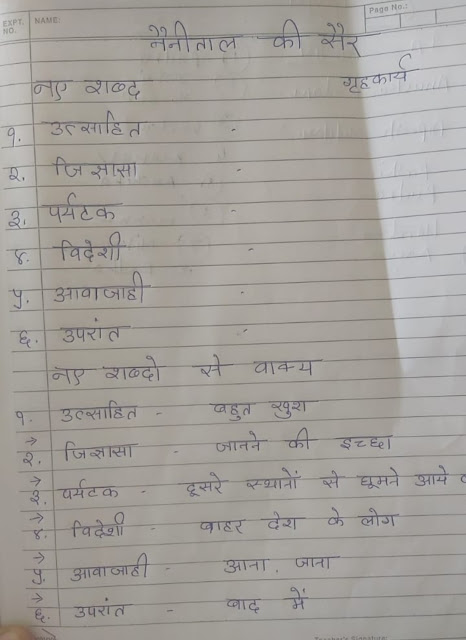 EXPT. NO. NAME: Page No.:
नैनीताल की सैर
नए शब्द गृहकार्य
१. उत्साहित -
२. जिज्ञासा -
३. पर्यटक -
४. विदेशी -
५. आवाजाही -
६. उपरांत -
नए शब्दो से वाक्य
१. उत्साहित - बहुत खुश
→
२. जिज्ञासा - जानने की इच्छा
→
३. पर्यटक - दूसरे स्थानों से घूमने आये
→
४. विदेशी - बाहर देश के लोग
→
५. आवाजाही - आना, जाना
→
६. उपरांत - बाद में
Teacher's Signature